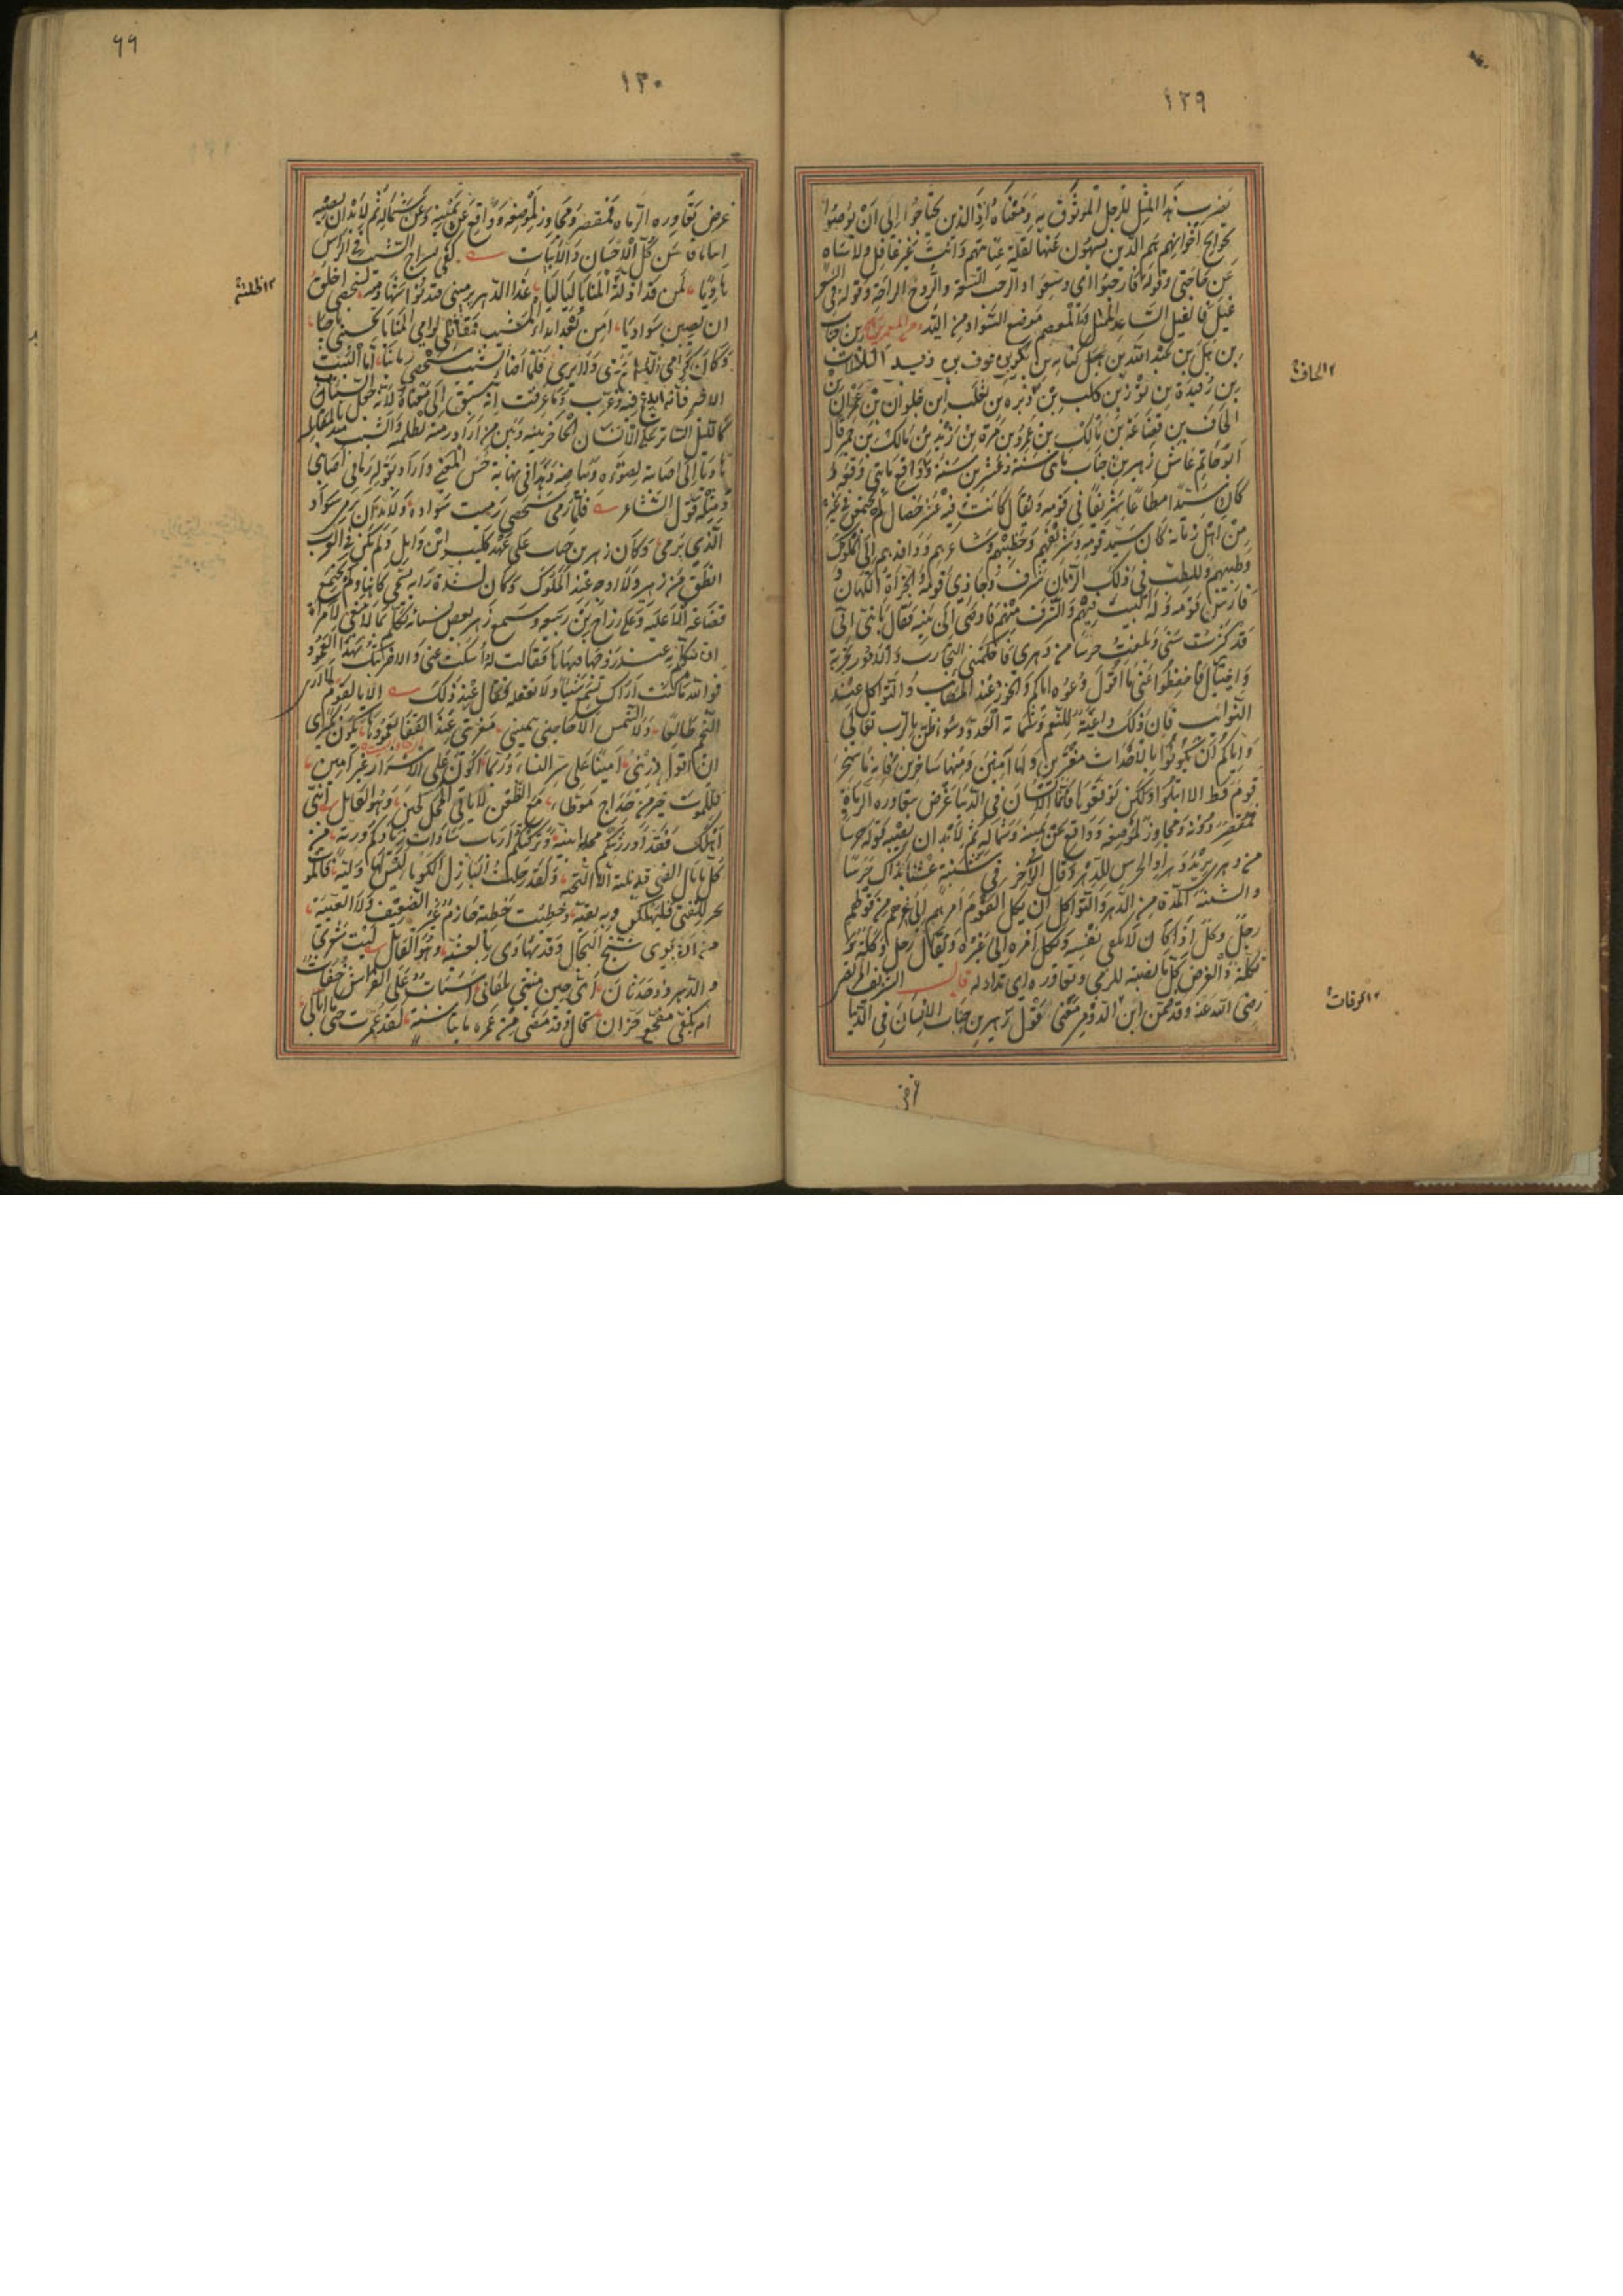 ١٢٩
يضرب هذا المثل للرجل الموثوق به ومعناه اذا الذين يحتاجوا الى ان يوصوا
بحوايج اخوانهم هم الذين يسهون عنها لقلة عنايتهم وانت غير غافل ولا ساه
عن حاجتى وقوله فارحبوا اى وسعوا والرحب السعة والروح الراحة وقوله فى
غيل فالغيل الساعد الممتلى والمعصم موضع السوار من اليد ومن المعمرين زهير بن جناب
بن هبل بن عبد الله بن كنانة بن بكر بن عوف بن زيد اللات
بن رفيدة بن ثور بن كلب بن وبرة بن تغلب ابن حلوان بن عمران بن
الحاف بن قضاعة بن مالك بن عمرو بن مرة بن زيد بن مالك بن حمير قال
ابو حاتم عاش زهير بن جناب مائتى سنة وعشرين سنة وواقع مائتى وقعة و
كان سيدا مطاعا شريفا فى قومه ويقال كانت فيه عشر خصال لم يجتمعن فى غيره
من اهل زمانه كان سيد قومه وشريفهم وخطيبهم وشاعرهم ووافدهم الى الملوك
وطبيبهم وللطب فى ذلك الزمان شرف وحازى قومه والحزاة الكهان و
فارس قومه وله البيت فيهم والشرف منهم فاوصى الى بنيه فقال يا بنى انى
قد كبرت سنى وبلغت حرسا من دهرى فاحكمتنى التجارب والامور تجربة
واختبال فاحفظوا عنى ما اقول وعوه اياكم والخور عند المصائب والتواكل عند
النوائب فان ذلك داعية للغم وشماتة العدو وسوء ظن بالرب تعالى
واياكم ان تكونوا بالاحداث مغترين ولها آمنين ومنها ساخرين فانه ما سخر
قوم قط الا ابتلوا ولكن توقعوها فانما الانسان فى الدنيا غرض تعاوره الرماة
فمقصر دونه ومجاوز لموضعه وواقع عن يمينه وشماله ثم لا بد ان يصيبه قوله حرسا
من دهرى يريد دهرا والحرس الدهر وقال الآخر فى سنبة عشنا بذاك حرسا
والسنبة المدة من الدهر والتواكل ان يكل القوم امرهم الى غيرهم من قولهم
رجل وكل اذا كان لا يكفى نفسه ويكل امره الى غيره ويقال رجل وكلة و
تكلة والغرض كل ما نصبته للرمى وتعاوره اى تداوله قال الشريف المرتضى
رضى الله عنه وقد ضمن ابن الرومى معنى قول زهير بن جناب الانسان فى الدنيا
غرض
١٢ الحاف
١٣٠
٦٦
غرض تعاوره الرماة فمقصر ومجاوز لموضعه وواقع عن يمينه وعن شماله ثم لا بد ان يصيبه
ابياتا فاحسن كل الاحسان والابيات كفى بسراج الشيب فى الراس
هاديا لمن قد اضلته المنايا لياليا غدا الدهر يرمينى فتدنو سهامه لشخصى اخلق
ان يصبن سواديا امن بعد ابداء المشيب مقاتلى لرامى المنايا تحسبنى ناجيا
وكان كرامى الليل يرمى ولا يرى فلما اضاء الشيب شخصى رمانيا اما البيت
الاخير فانه ابدع فيه وغرب وما عرفت انه سبق الى معناه لانه جعل الشباب
كالليل الساتر على الانسان الحاجز بينه وبين من اراد رميه لظلمته والشيب مبديا لمقاتله
هاديا الى اصابته لضوئه وبياضه وهذا فى نهاية حسن المعنى واراد بقوله رمانى اصابنى
ومثله قول الشاعر فلما رمى شخصى رميت سواده ولا بد ان يرمى سواد
الذى يرمى وكان زهير بن جناب على عهد كليب ابن وايل ولم يكن فى العرب
انطق من زهير ولا اوجه عند الملوك وكان لسدة رايه يسمى كاهنا ولم يجتمع
قضاعة الا عليه وعلى رزاح بن ربيعة وسمع زهير بعض نسائه تتكلم بما لا ينبغى لامراة
ان تتكلم به عند زوجها فنهاها فقالت له اسكت عنى والا ضربتك بهذا العمود
فوالله ما كنت اراك تسمع شيئا ولا تعقله فقال عند ذلك الا يا لقوم لا ارى
النجم طالعا ولا الشمس الا حاجبى بيمينى معزبتى عند القفا بعمودها يكون نكيرى
ان اقول ذرينى امينا على سر النساء وربما اكون على الاسرار غير امين
فللموت خير من حداج موطا مع الظعن لا ياتى المحل لحين وهو القايل ابنى
ان اهلك فقد اورثتكم مجدا بنية وتركتكم ارباب سادات زنادكم ورية من
كل ما نال الفتى قد نلته الا التحية ولقد رحلت البازل الكوماء ليس لها ولية فالموت
خير للفتى فليهلكن وبه بقية وخطبت خطبة حازم غير الضعيف ولا العيية
من ان يرى شيخ البجال وقد يهادى بالعشية وهو القائل ليت شعرى
والدهر ذو حدثان اى حين منيتى تلقانى اسبات على الفراش خفات
ام بكفى مفجع حران قال وقد مضى من عمره مائتا سنة لقد عمرت حتى ما ابالى